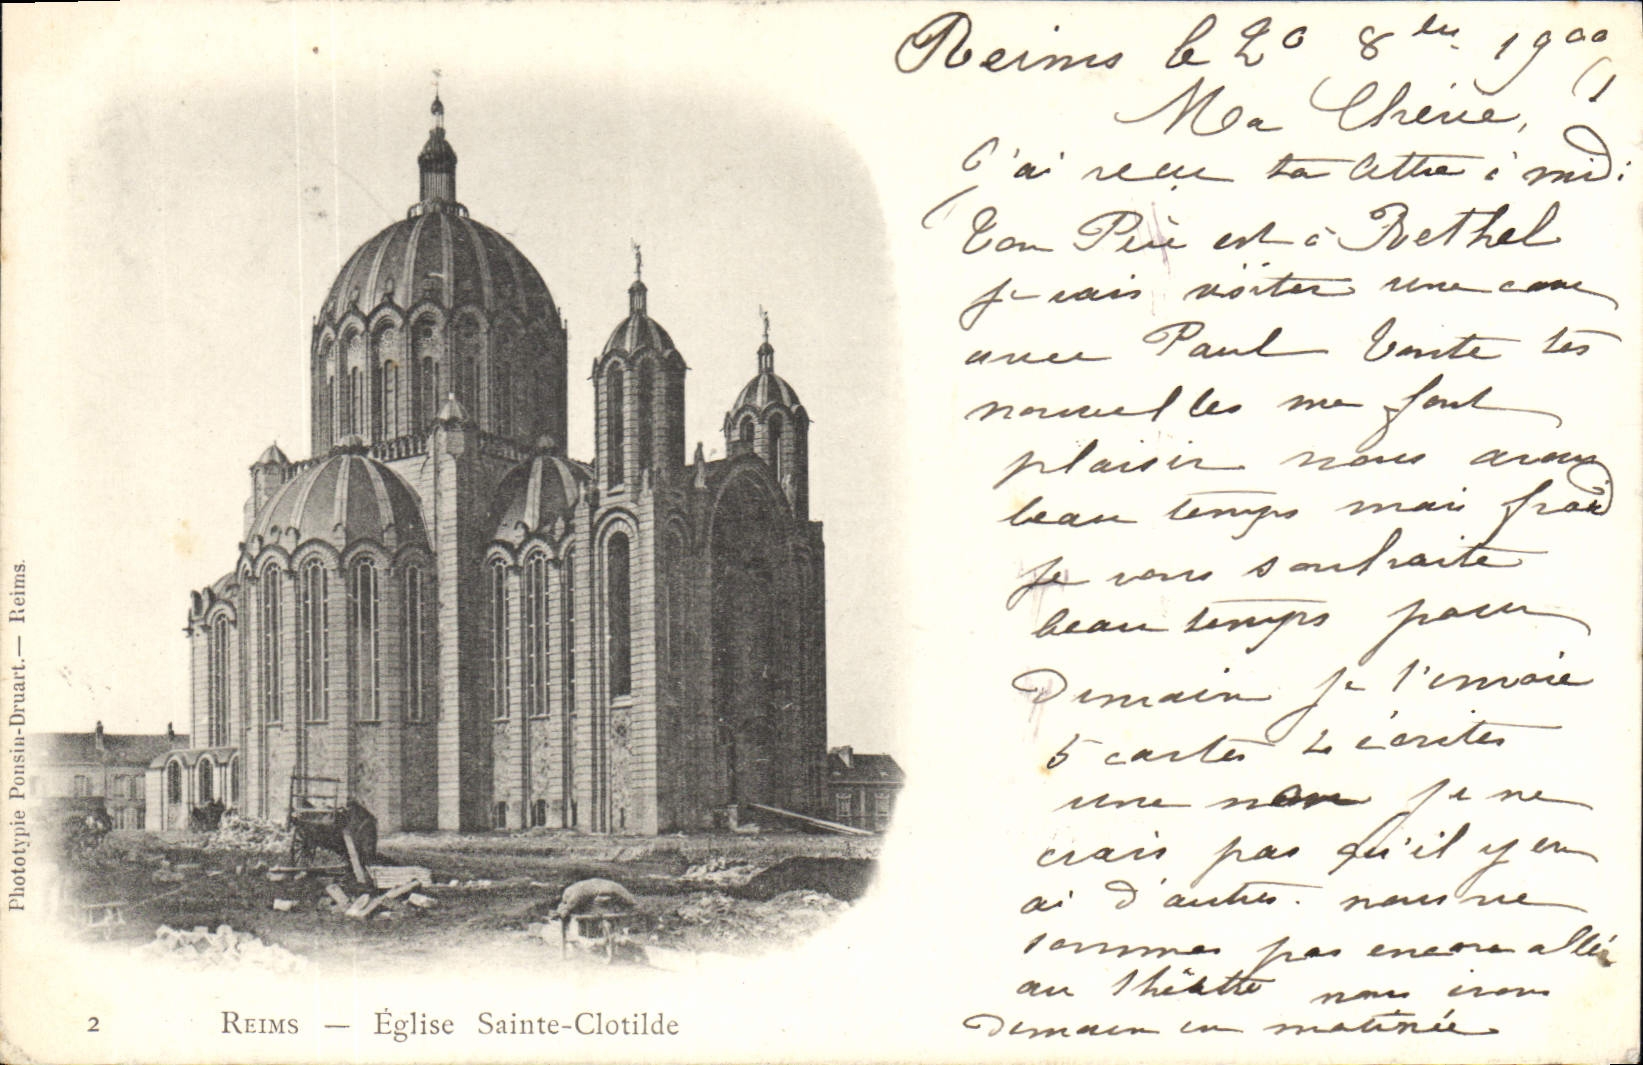 Reims le 20 8bre 1900
Ma Chérie,
J'ai reçu ta lettre à midi
Ton Père est à Rethel
je vais visiter une cave
avec Paul Toute tes
nouvelles me font
plaisir nous avons
beau temps mais froid
je vous souhaite
beau temps pour
Demain je t'envoie
5 cartes 2 écrites
une non je ne
crois pas qu'il y en
ai d'autres. nous ne
sommes pas encore allés
au théâtre nous irons
Demain en matinée
Phototypie Ponsin-Druart. — Reims.
2 REIMS — Église Sainte-Clotilde